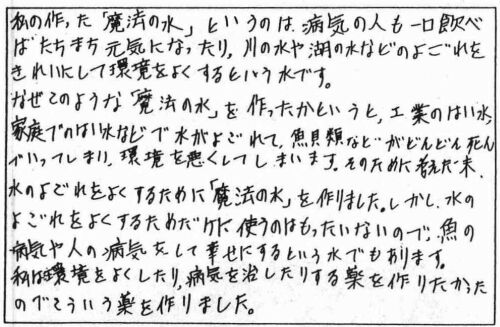 私の作った「魔法の水」というのは、病気の人も一口飲べ
ばたちまち元気になったり、川の水や湖の水などのよごれを
きれいにして環境をよくするという水です。
なぜこのような「魔法の水」を作ったかというと、工業のはい水、
家庭でのはい水などで水がよごれて、魚貝類などがどんどん死ん
でいってしまり、環境を悪くしてしまいます。そのために考えた末、
水のよごれをよくするために「魔法の水」を作りました。しかし、水の
よごれをよくするためだけに使うのはもったいないので、魚の
病気や人の病気をして幸せにするという水でもあります。
私は環境をよくしたり、病気を治したりする薬を作りたかった
のでこういう薬を作りました。